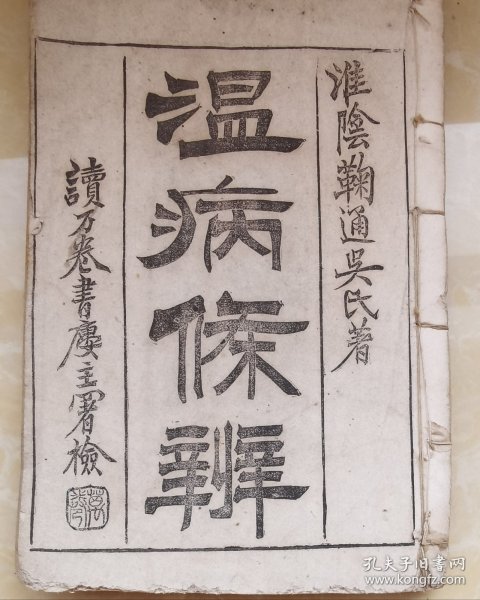 淮陰鞠通吳氏著
温病條辨
讀万卷書廔主署檢
孔夫子旧书网
www.kongfz.com